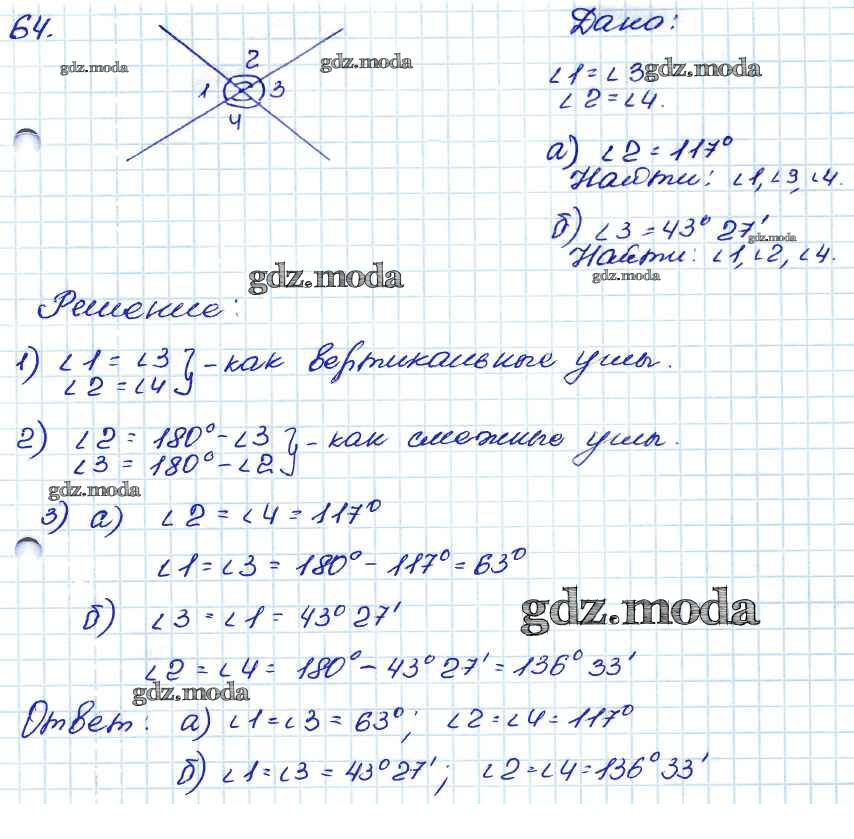 64.
Дано:
gdz.moda
2
gdz.moda
∠1 = ∠3 gdz.moda
1 3
∠2 = ∠4.
4
а) ∠2 = 117°
Найти: ∠1, ∠3, ∠4.
б) ∠3 = 43° 27'
gdz.moda
Найти: ∠1, ∠2, ∠4.
gdz.moda
gdz.moda
Решение:
1) ∠1 = ∠3 } - как вертикальные углы.
∠2 = ∠4
2) ∠2 = 180° - ∠3 } - как смежные углы.
∠3 = 180° - ∠2
gdz.moda
3) а) ∠2 = ∠4 = 117°
∠1 = ∠3 = 180° - 117° = 63°
б) ∠3 = ∠1 = 43° 27'
gdz.moda
∠2 = ∠4 = 180° - 43° 27' = 136° 33'
gdz.moda
Ответ: а) ∠1 = ∠3 = 63°; ∠2 = ∠4 = 117°
б) ∠1 = ∠3 = 43° 27'; ∠2 = ∠4 = 136° 33'